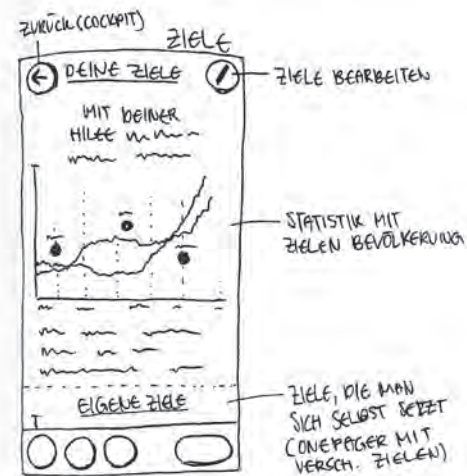 ZURÜCK (COCKPIT)
ZIELE
DEINE ZIELE
ZIELE BEARBEITEN
MIT DEINER
HILFE
STATISTIK MIT
ZIELEN BEVÖLKERUNG
EIGENE ZIELE
ZIELE, DIE MAN
SICH SELBST SETZT
(ONEPAGER MIT
VERSCH. ZIELEN)